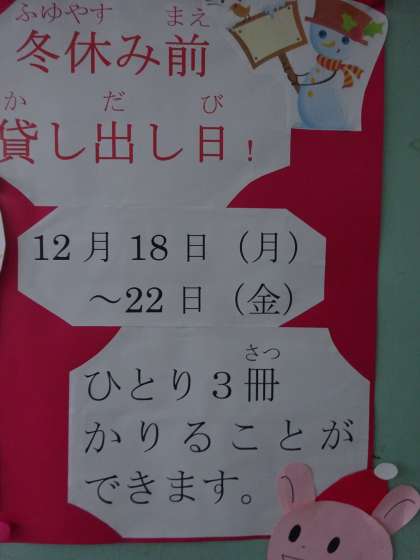 ふゆやす まえ
冬休み前
か だ び
貸し出し日!
12月18日(月)
～22日(金)
さつ
ひとり3冊
かりることが
できます。